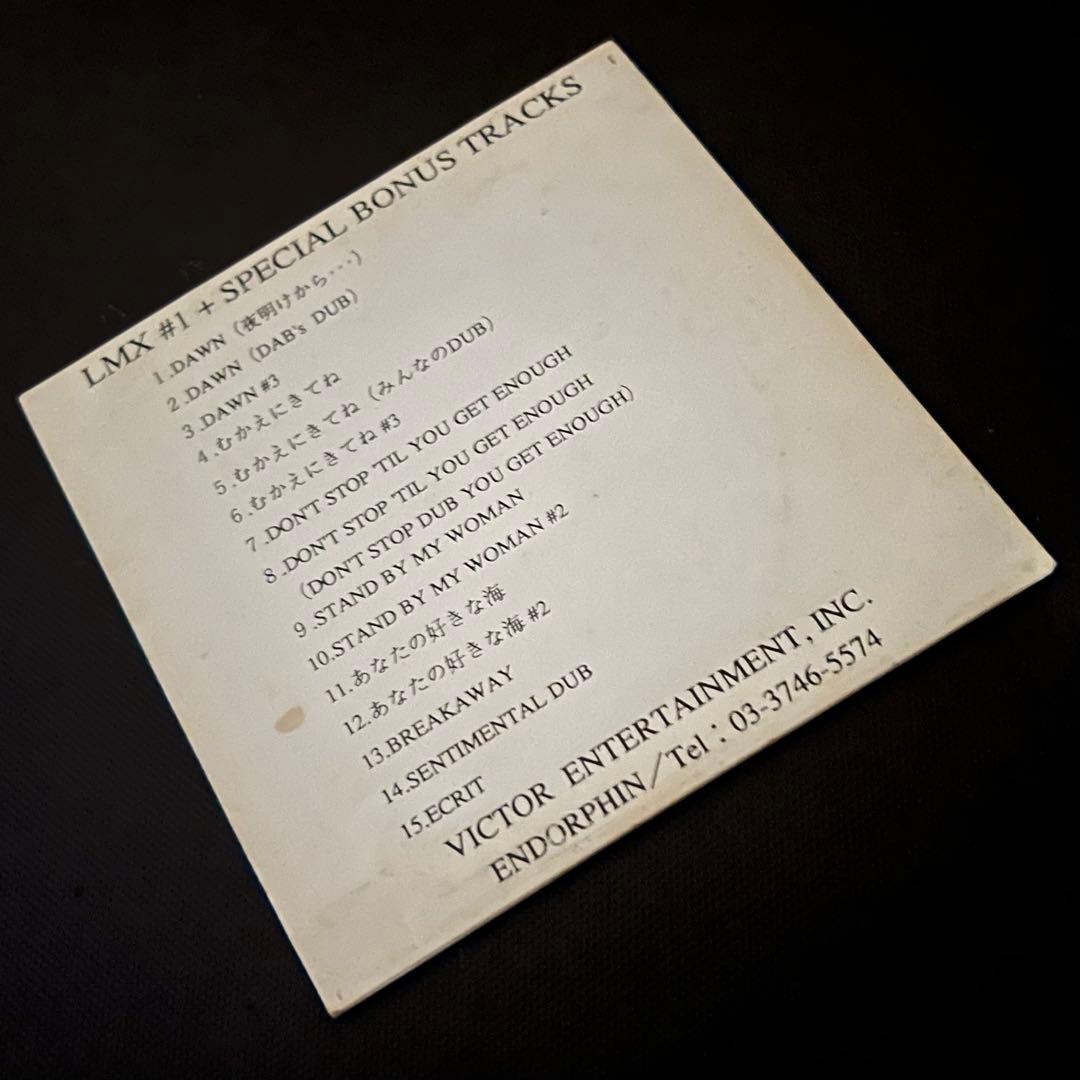 LMX #1 + SPECIAL BONUS TRACKS
1.DAWN（夜明けから･･･）
2.DAWN（DAB's DUB）
3.DAWN #3
4.むかえにきてね
5.むかえにきてね（みんなのDUB）
6.むかえにきてね #3
7.DON'T STOP 'TIL YOU GET ENOUGH
8.DON'T STOP 'TIL YOU GET ENOUGH
（DON'T STOP DUB YOU GET ENOUGH）
9.STAND BY MY WOMAN
10.STAND BY MY WOMAN #2
11.あなたの好きな海
12.あなたの好きな海 #2
13.BREAKAWAY
14.SENTIMENTAL DUB
15.ECRIT
VICTOR ENTERTAINMENT, INC.
ENDORPHIN／Tel：03-3746-5574